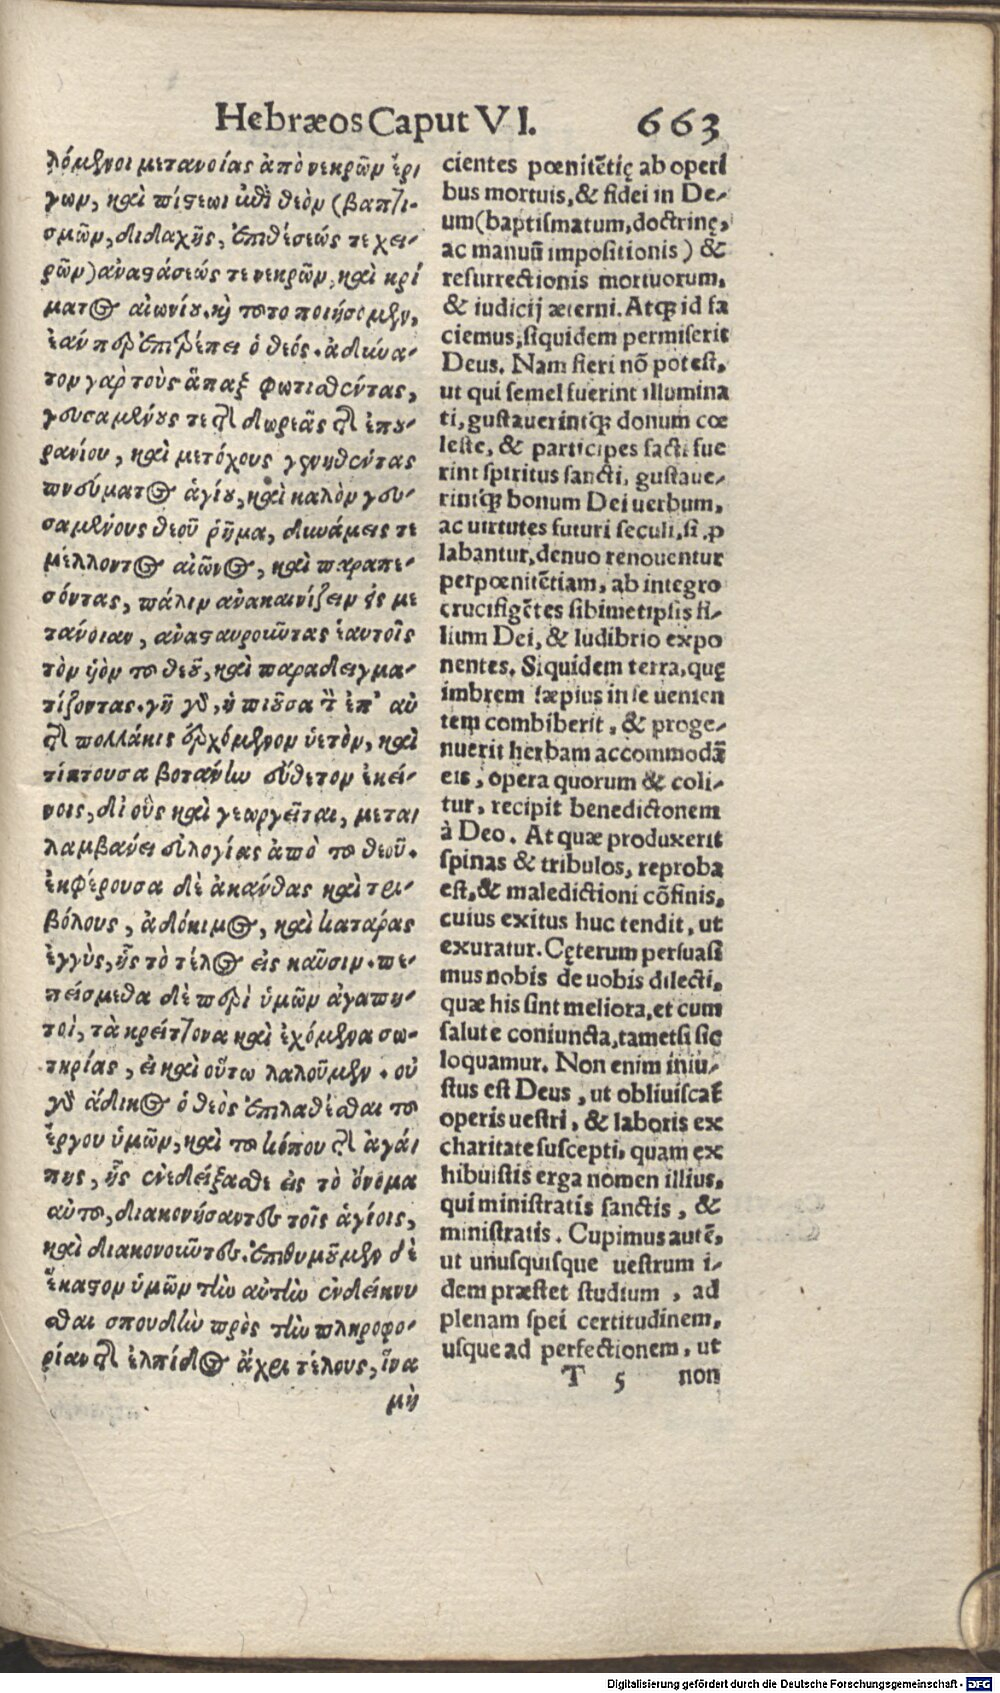 Hebræos Caput VI. 663
λόμενοι μετανοίας ἀπὸ νεκρῶν ἔρ
γων, καὶ πίςεως ἐπὶ θεὸν (βαπτι-
σμῶν, διδαχῆς, ἐπιθέσεώς τε χει-
ρῶν) ἀναςάσεώς τε νεκρῶν, καὶ κρί
ματος αἰωνίου. καὶ τοῦτο ποιήσομεν,
ἐάνπερ ἐπιτρέπει ὁ θεός. ἀδύνα-
τον γὰρ τοὺς ἅπαξ φωτισθέντας,
γευσαμένους τε τῆς δωρεᾶς τῆς ἐπου
ρανίου, καὶ μετόχους γενηθέντας
πνεύματος ἁγίου, καὶ καλὸν γευ-
σαμένους θεοῦ ῥῆμα, δυνάμεις τε
μέλλοντος αἰῶνος, καὶ παραπε-
σόντας, πάλιν ἀνακαινίζειν εἰς με
τάνοιαν, ἀναςαυροῦντας ἑαυτοῖς
τὸν υἱὸν τοῦ θεοῦ, καὶ παραδειγμα-
τίζοντας. γῆ γὰρ, ἡ πιοῦσα τὸν ἐπ' αὐ
τῆς πολλάκις ἐρχόμενον ὑετὸν, καὶ
τίκτουσα βοτάνην εὔθετον ἐκεί-
νοις, δι οὓς καὶ γεωργεῖται, μετα
λαμβάνει εὐλογίας ἀπὸ τοῦ θεοῦ.
ἐκφέρουσα δὲ ἀκάνθας καὶ τρι-
βόλους, ἀδόκιμος, καὶ κατάρας
ἐγγὺς, ἧς τὸ τέλος εἰς καῦσιν. πε-
πείσμεθα δὲ περὶ ὑμῶν ἀγαπη-
τοὶ, τὰ κρείττονα καὶ ἐχόμενα σω-
τηρίας, εἰ καὶ οὕτω λαλοῦμεν. οὐ
γὰρ ἄδικος ὁ θεὸς ἐπιλαθέσθαι τοῦ
ἔργου ὑμῶν, καὶ τοῦ κόπου τῆς ἀγά
πης, ἧς ἐνεδείξασθε εἰς τὸ ὄνομα
αὐτοῦ, διακονήσαντες τοῖς ἁγίοις,
καὶ διακονοῦντες. ἐπιθυμοῦμεν δὲ
ἕκαςον ὑμῶν τὴν αὐτὴν ἐνδείκνυ
σθαι σπουδὴν πρὸς τὴν πληροφο-
ρίαν τῆς ἐλπίδος ἄχρι τέλους, ἵνα
μὴ
cientes pœnitẽtię ab operi
bus mortuis, & fidei in De-
um (baptismatum, doctrinę,
ac manuũ impositionis) &
resurrectionis mortuorum,
& iudicij æterni. Atq; id fa
ciemus, siquidem permiserit
Deus. Nam fieri nõ potest,
ut qui semel fuerint illumina
ti, gustauerintq; donum cœ
leste, & participes facti fue
rint spiritus sancti, gustaue-
rintq; bonum Dei uerbum,
ac uirtutes futuri seculi, si .p
labantur, denuo renouentur
per pœnitẽtiam, ab integro
crucifigẽtes sibimetipsis fi-
lium Dei, & ludibrio expo
nentes. Siquidem terra, quę
imbrem sæpius in se uenien
tem combiberit, & proge-
nuerit herbam accommodã
eis, opera quorum & coli-
tur, recipit benedictonem
à Deo. At quæ produxerit
spinas & tribulos, reproba
est, & maledictioni cõfinis,
cuius exitus huc tendit, ut
exuratur. Cęterum persuasi
mus nobis de uobis dilecti,
quæ his sint meliora, et cum
salute coniuncta, tametsi sic
loquamur. Non enim iniu-
stus est Deus, ut obliuiscat̃
operis uestri, & laboris ex
charitate suscepti, quam ex
hibuistis erga nomen illius,
qui ministratis sanctis, &
ministratis. Cupimus autẽ,
ut unusquisque uestrum i-
dem præstet studium, ad
plenam spei certitudinem,
usque ad perfectionem, ut
T 5 non
Digitalisierung gefördert durch die Deutsche Forschungsgemeinschaft - DFG